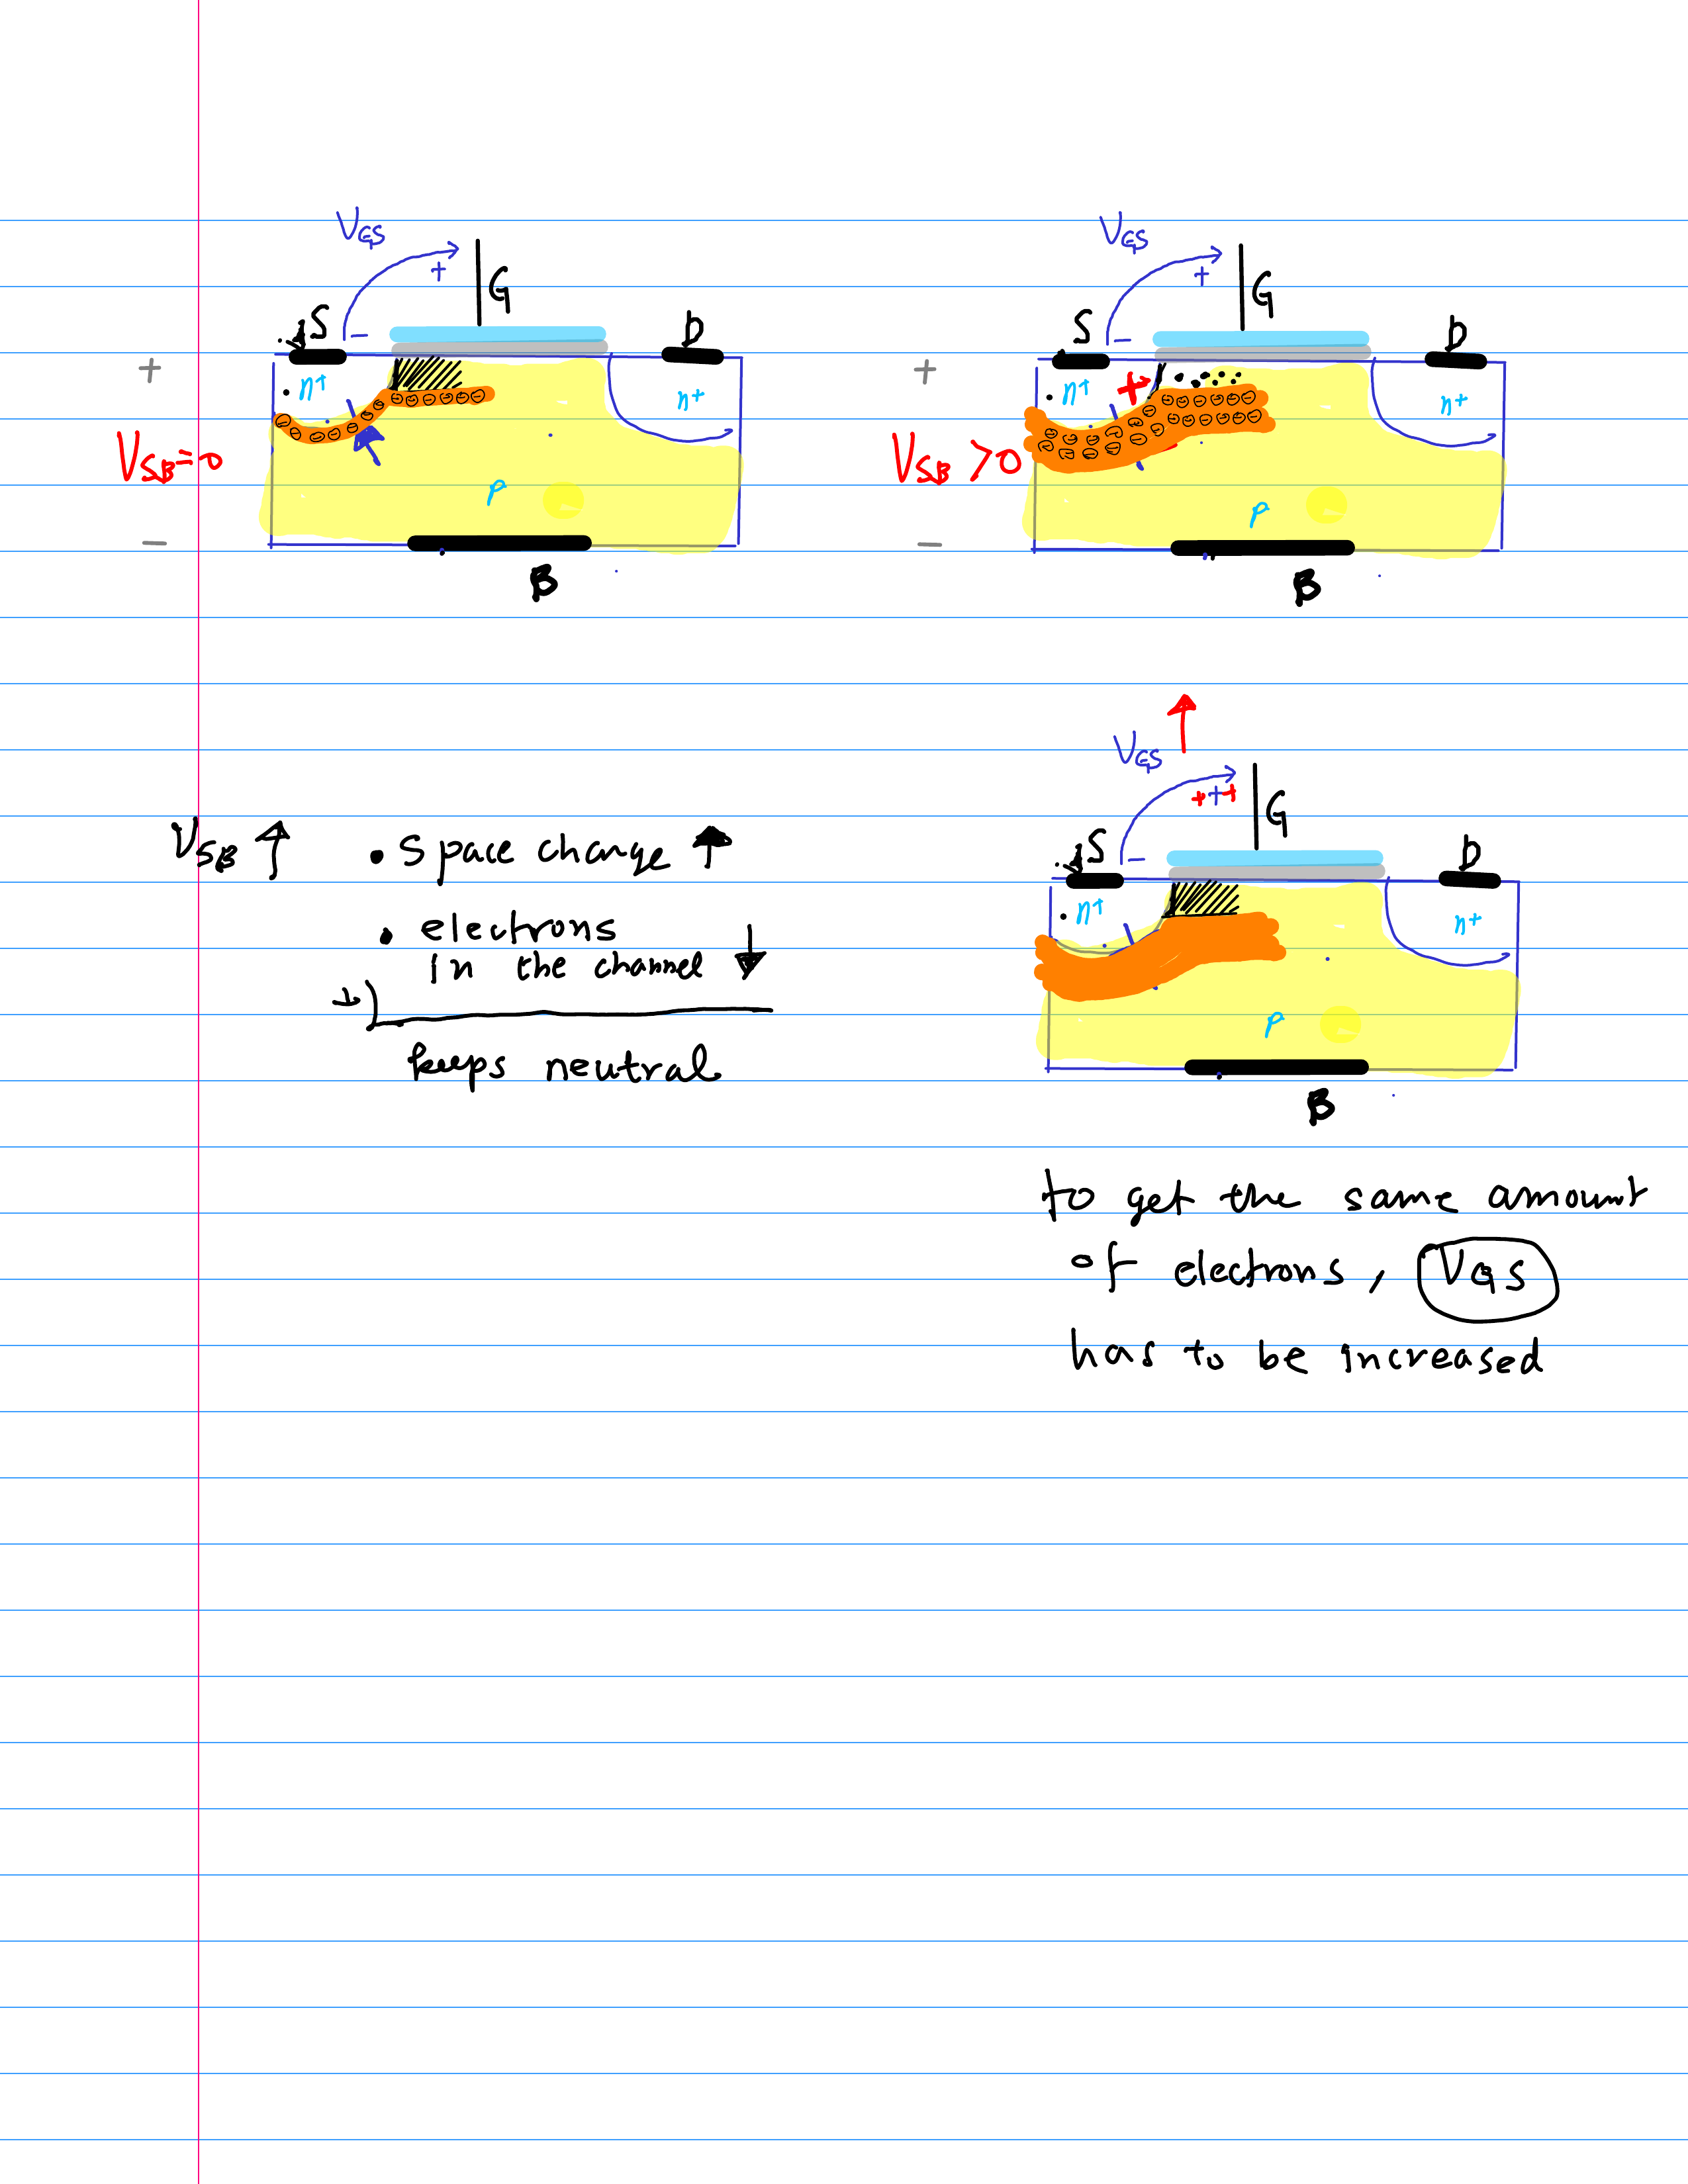 VGS
+
G
S
-
D
n+
n+
+
VSB=0
p
-
B
VGS
+
G
S
-
D
+
n+
+
n+
VSB >0
p
-
B
VGS ↑
+++
G
S
-
D
n+
n+
p
B
VSB ↑
• Space charge ↑
• electrons
in the channel ↓
keeps neutral
to get the same amount
of electrons, VGS
has to be increased